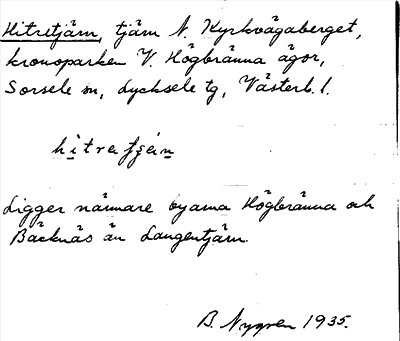 Hitretjärn, tjärn N. Kyrkvägaberget,
kronoparken V. Högbränna ägor,
Sorsele sn, Lycksele tg, Västerb. l.
hitretjɛ́n
Ligger närmare byarna Högbränna och
Bäcknäs än Langentjärn.
B. Nygren 1935.